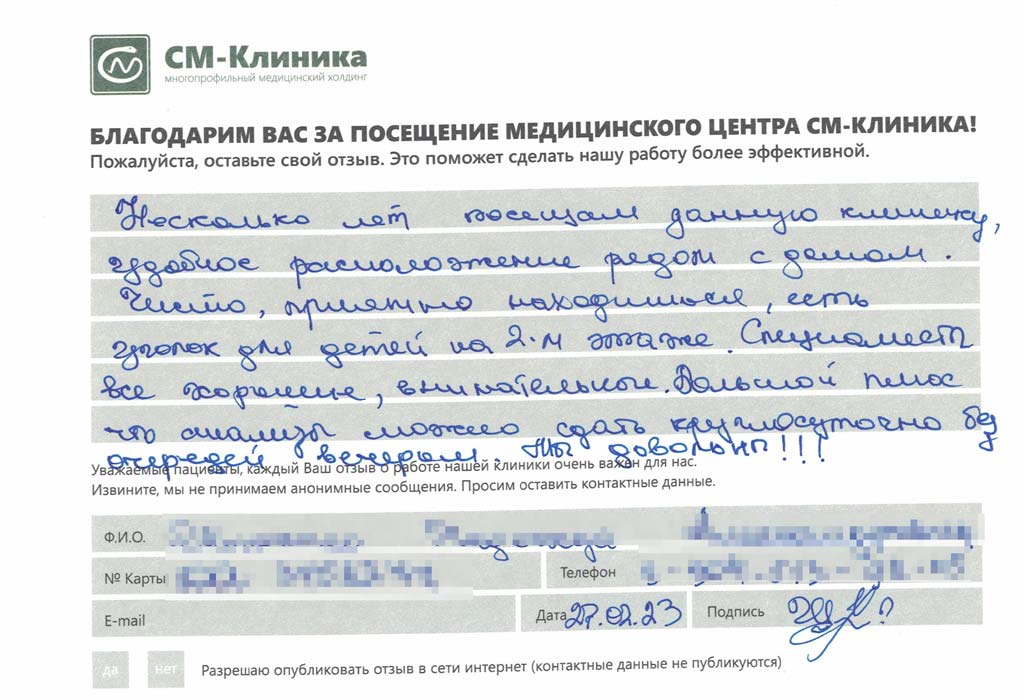 СМ-Клиника
многопрофильный медицинский холдинг
БЛАГОДАРИМ ВАС ЗА ПОСЕЩЕНИЕ МЕДИЦИНСКОГО ЦЕНТРА СМ-КЛИНИКА!
Пожалуйста, оставьте свой отзыв. Это поможет сделать нашу работу более эффективной.
Несколько лет посещаем данную клинику,
удобное расположение рядом с домом.
Чисто, приятно находиться, есть
уголок для детей на 2-м этаже. Специалисты
все хорошие, внимательные. Большой плюс
что анализы можно сдать круглосуточно без
очередей вечером. Мы довольны!!!
Уважаемые пациенты, каждый Ваш отзыв о работе нашей клиники очень важен для нас.
Извините, мы не принимаем анонимные сообщения. Просим оставить контактные данные.
Ф.И.О.
№ Карты Телефон
E-mail Дата 27.02.23 Подпись
да нет Разрешаю опубликовать отзыв в сети интернет (контактные данные не публикуются)